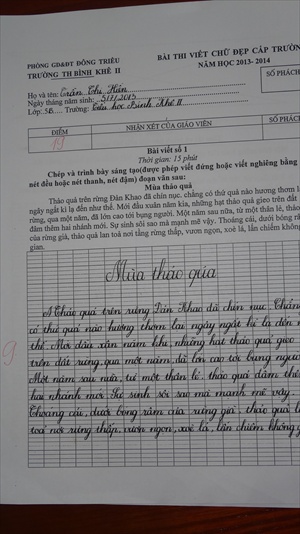 PHÒNG GD&ĐT ĐÔNG TRIỀU
TRƯỜNG TH BÌNH KHÊ II
BÀI THI VIẾT CHỮ ĐẸP CẤP TRƯỜNG
NĂM HỌC 2013- 2014
Họ và tên: Trần Thị Hân
Ngày tháng năm sinh: 5/7/2013
Lớp: 5B Trường: Tiểu học Bình Khê II
ĐIỂM
NHẬN XÉT CỦA GIÁO VIÊN
19
Bài viết số 1
Thời gian: 15 phút
Chép và trình bày sáng tạo(được phép viết đứng hoặc viết nghiêng bằng
nét đều hoặc nét thanh, nét đậm) đoạn văn sau:
Mùa thảo quả
Thảo quả trên rừng Đản Khao đã chín nục. chẳng có thứ quả nào hương thơm l
ngây ngất kì lạ đến như thế. Mới đầu xuân năm kia, những hạt thảo quả gieo trên đất
rừng, qua một năm, đã lớn cao tới bụng người. Một năm sau nữa, từ một thân lẻ, thảo
đâm thêm hai nhánh mới. Sự sinh sôi sao mà mạnh mẽ vậy. Thoáng cái, dưới bóng râ
của rừng già, thảo quả lan toả nơi tầng rừng thấp, vươn ngọn, xoè lá, lấn chiếm không
gian.
Mùa thảo quả
Thảo quả trên rừng Đản Khao đã chín nục. Chẳn
có thứ quả nào hương thơm lại ngây ngất kì lạ đến n
thế. Mới đầu xuân năm kia, những hạt thảo quả gieo
trên đất rừng, qua một năm đã lớn cao tới bụng người
Một năm sau nữa, từ một thân lẻ, thảo quả đâm thê
hai nhánh mới. Sự sinh sôi sao mà mạnh mẽ vậy.
Thoáng cái, dưới bóng râm của rừng già, thảo quả l
toả nơi rừng thấp, vươn ngọn, xoè lá, lấn chiếm không g
9